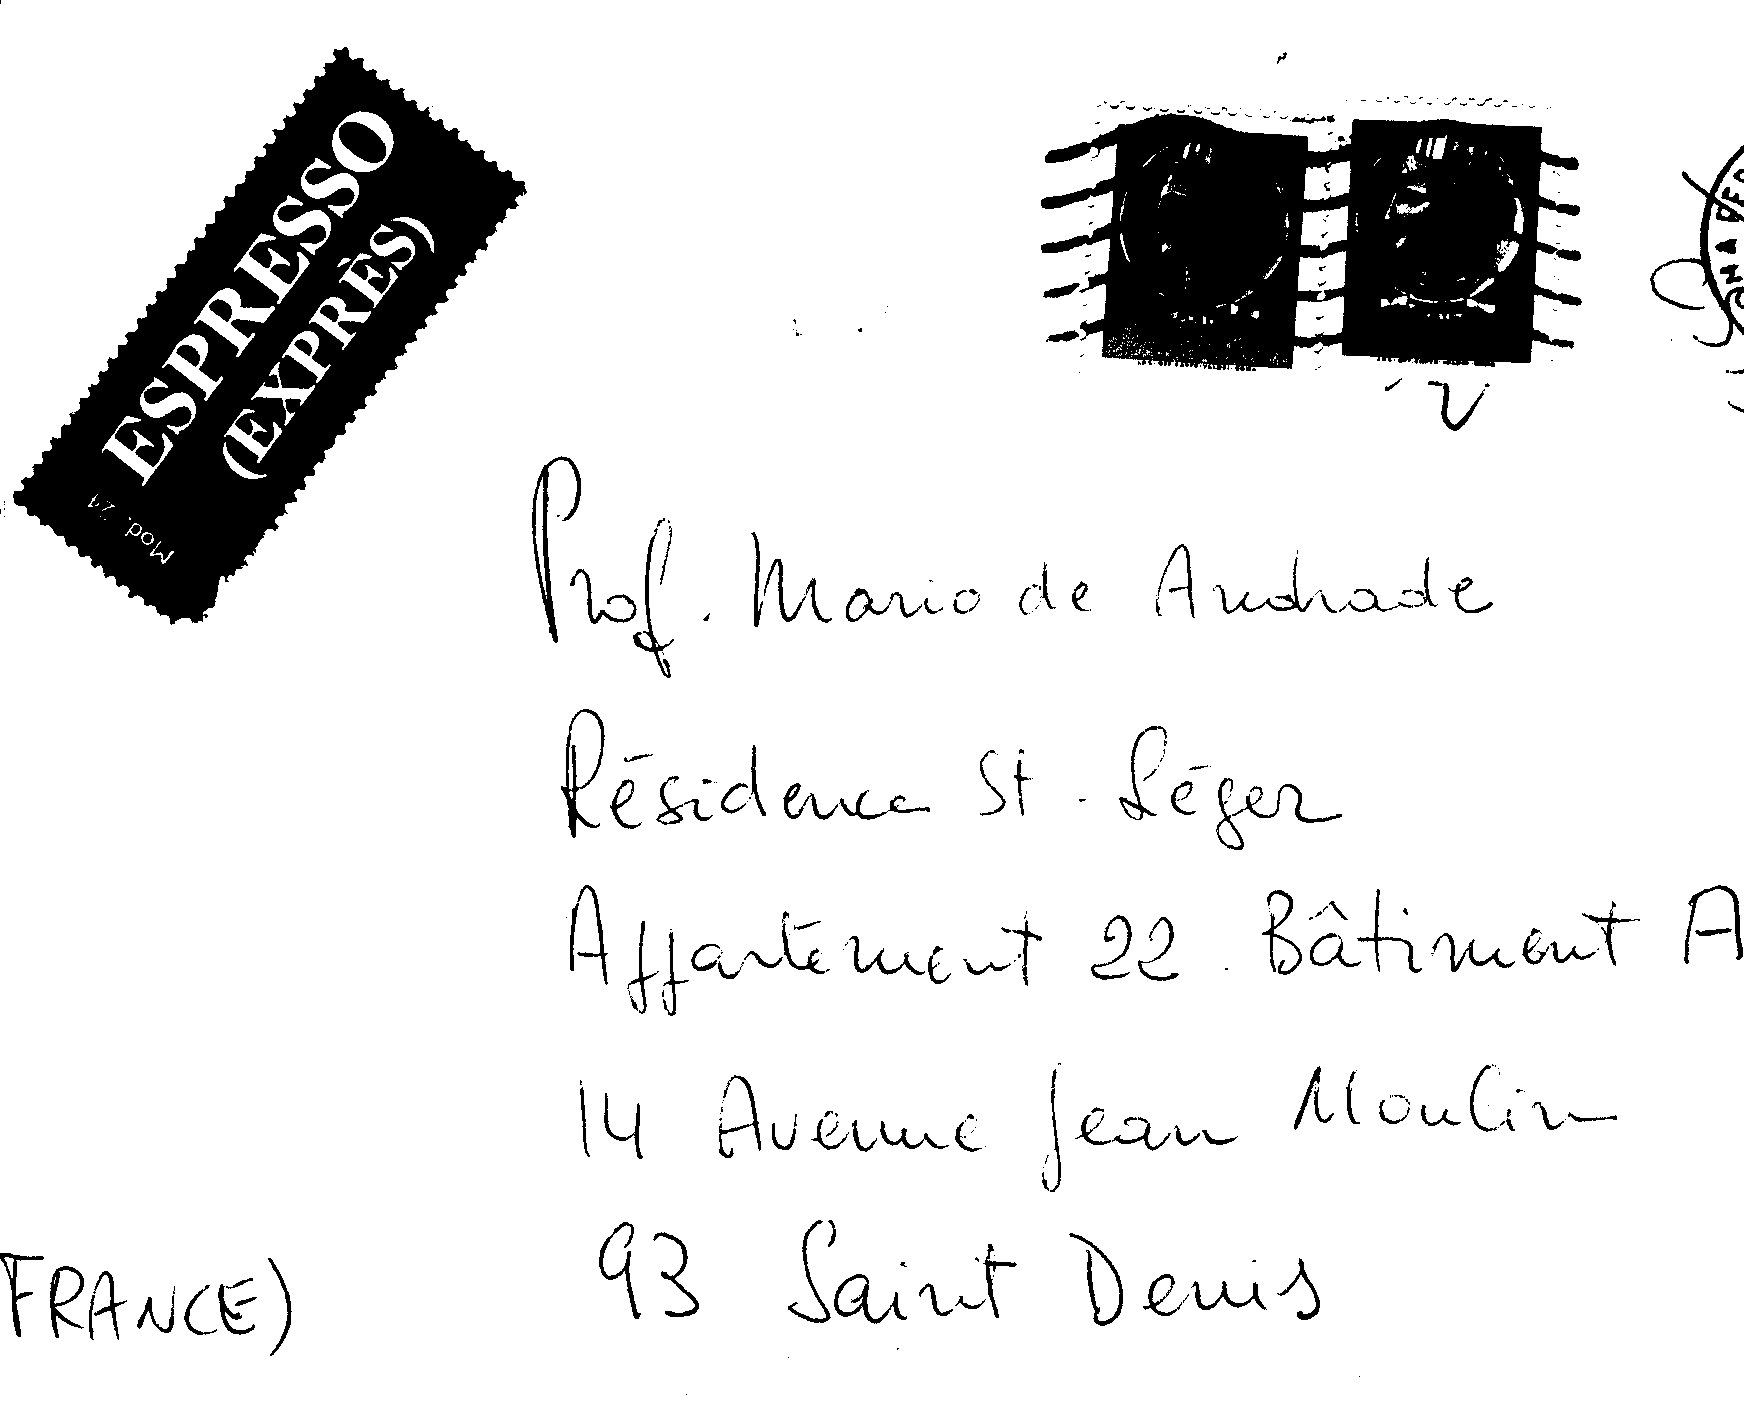 ESPRESSO
(EXPRÈS)
Mod. 24
Prof. Mario de Andrade
Résidence St. Léger
Appartement 22. Bâtiment A
14 Avenue Jean Moulin
93 Saint Denis
FRANCE)